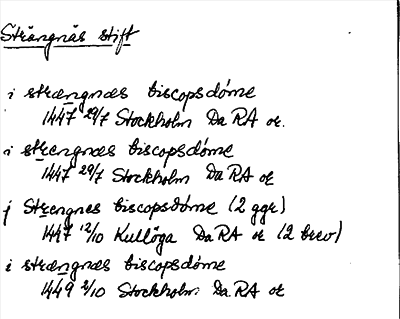 Strängnäs stift
i strængnæs biscopsdóme
1447 29/7 Stockholm DaRA or.
i strengnæs biscopsdóme
1447 29/7 Stockholm DaRA or
j Strengnes biscopsdóme (2 ggr)
1447 12/10 Kullöga DaRA or (2 brev)
i strængnæs biscopsdóme
1449 2/10 Stockholm DaRA or